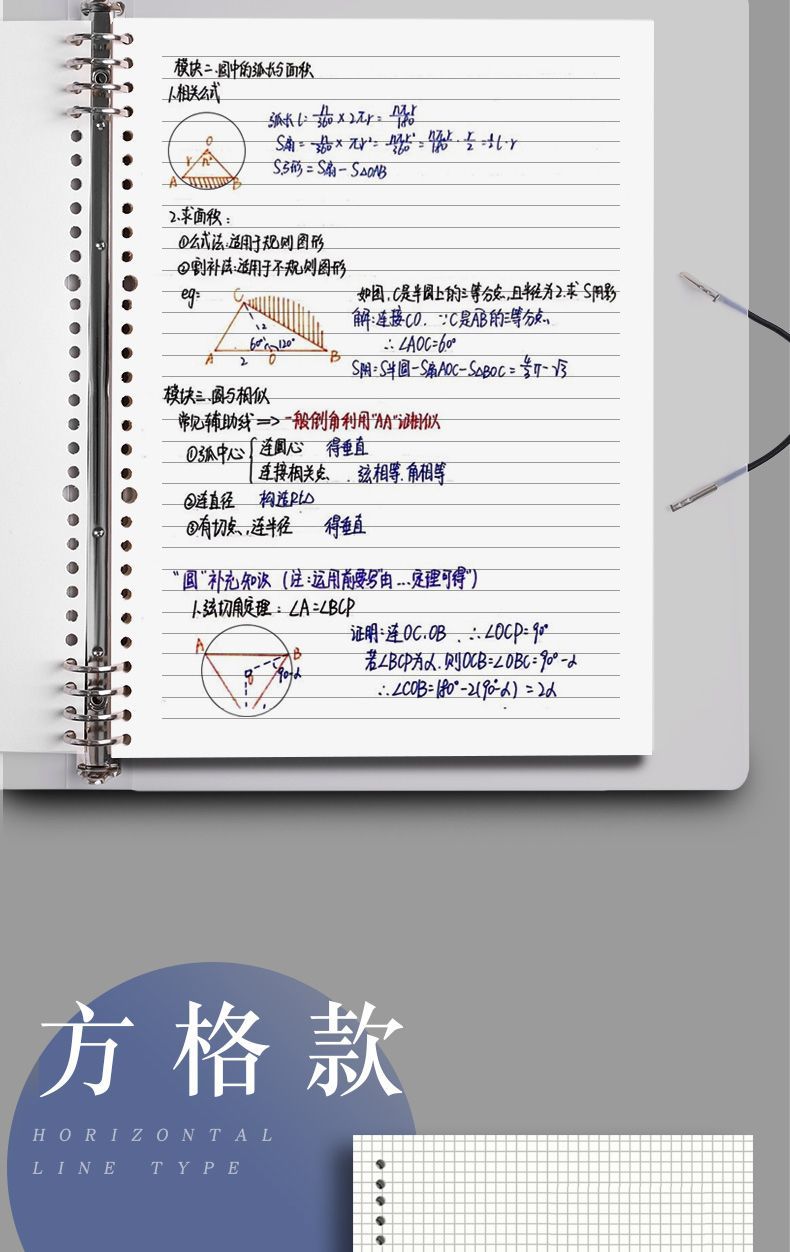 模块二.圆中的弧长与面积
1.相关公式
弧长l= n/360 × 2πr = nπr/180
S扇 = n/360 × πr² = nπr²/360 = nπr/180 · r/2 = 1/2 l·r
S弓形 = S扇 - S△OAB
O
r n°
A B
2.求面积:
①公式法:适用于规则图形
②割补法:适用于不规则图形
eg:
如图,C是半圆上的三等分点,且半径为2.求 S阴影
解:连接CO, ∵C是AB的三等分点,
∴∠AOC=60°
S阴=S半圆-S扇AOC-S△BOC= 4/3π-√3
C
2
60° 120°
A 2 O B
模块三.圆与相似
常见辅助线 => 一般倒角利用"AA"证相似
①弧中心 { 连圆心 得垂直
连接相关点 . 弦相等.角相等
②连直径 构造Rt△
③有切点,连半径 得垂直
"圆"补充知识 (注:运用前要写"由...定理可得")
1.弦切角定理: ∠A=∠BCP
证明:连OC.OB . ∴∠OCP=90°
若∠BCP为α.则OCB=∠OBC=90°-α
∴∠COB=180°-2(90°-α) = 2α
A B
O 90-α
方格款
HORIZONTAL
LINE TYPE